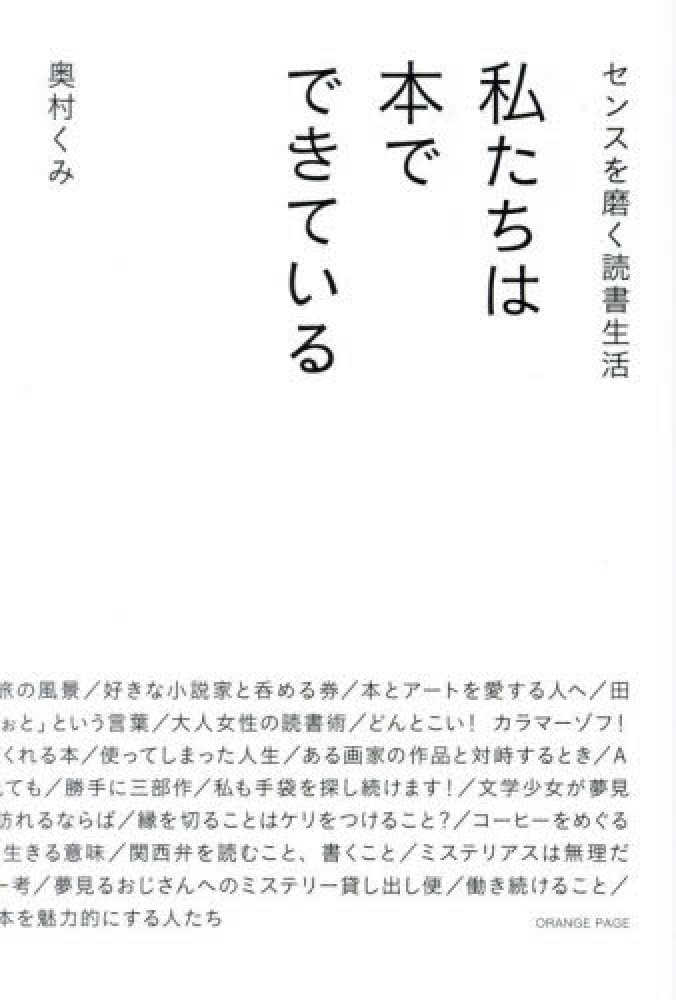 センスを磨く読書生活
私たちは
本で
できている
奥村くみ
旅の風景／好きな小説家と呑める券／本とアートを愛する人へ／田
ぉと」という言葉／大人女性の読書術／どんとこい！ カラマーゾフ！
くれる本／使ってしまった人生／ある画家の作品と対峙するとき／A
ても／勝手に三部作／私も手袋を探し続けます！／文学少女が夢見
訪れるならば／縁を切ることはケリをつけること？／コーヒーをめぐる
生きる意味／関西弁を読むこと、書くこと／ミステリアスは無理だ
ー考／夢見るおじさんへのミステリー貸し出し便／働き続けること／
本を魅力的にする人たち
ORANGE PAGE